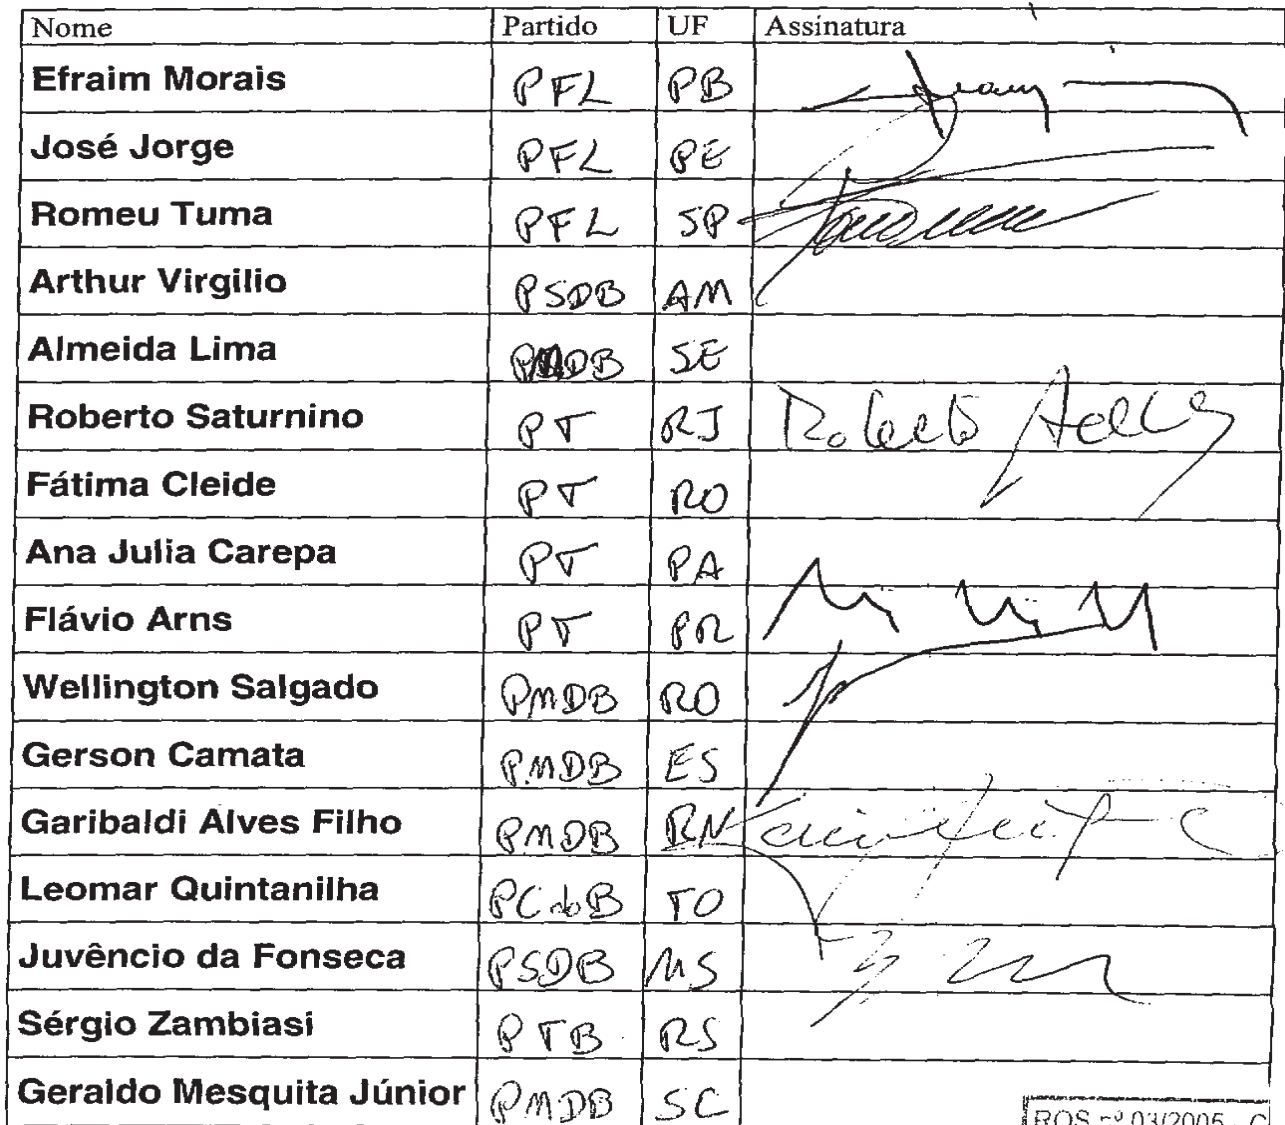 Nome Partido UF Assinatura
Efraim Morais PFL PB
José Jorge PFL PE
Romeu Tuma PFL SP
Arthur Virgilio PSDB AM
Almeida Lima PMDB SE
Roberto Saturnino PT RJ Roberto
Fátima Cleide PT RO
Ana Julia Carepa PT PA
Flávio Arns PT PR
Wellington Salgado PMDB RO
Gerson Camata PMDB ES
Garibaldi Alves Filho PMDB RN
Leomar Quintanilha PCdoB TO
Juvêncio da Fonseca PSDB MS
Sérgio Zambiasi PTB RS
Geraldo Mesquita Júnior PMDB SC
RQS nº 03/2005 - C